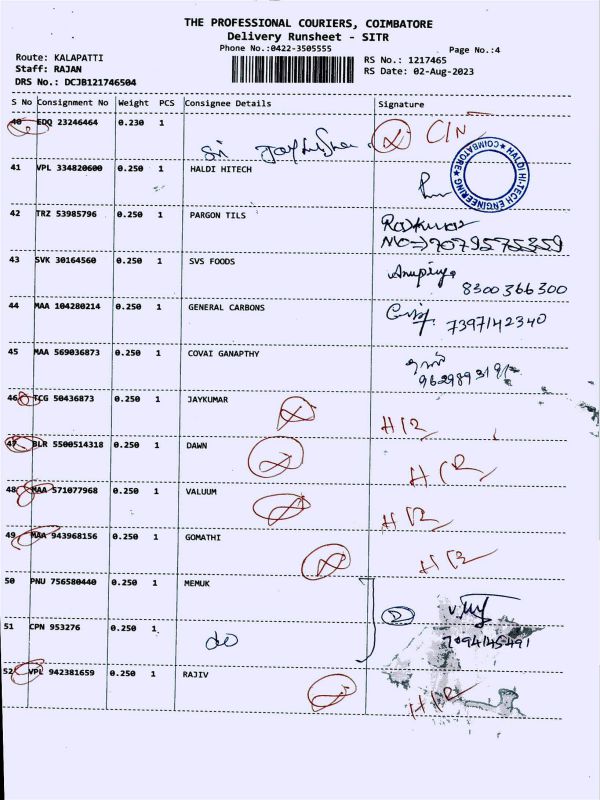 THE PROFESSIONAL COURIERS, COIMBATORE
Delivery Runsheet - SITR
Phone No.:0422-3505555
Page No.:4
Route: KALAPATTI
RS No.: 1217465
Staff: RAJAN
RS Date: 02-Aug-2023
DRS No.: DCJB121746504
S No Consignment No Weight PCS Consignee Details Signature
40 EDQ 23246464 0.230 1 Sri C/N
41 VPL 334820600 0.250 1 HALDI HITECH
HALDI HI-TECH ENGINEERING ★ COIMBATORE ★
42 TRZ 53985796 0.250 1 PARGON TILS Rajkumar
NO=>7079575359
43 SVK 30164560 0.250 1 SVS FOODS
8300366300
44 MAA 104280214 0.250 1 GENERAL CARBONS
7397142340
45 MAA 569036873 0.250 1 COVAI GANAPTHY
46 TCG 50436873 0.250 1 JAYKUMAR
47 BLR 5500514318 0.250 1 DAWN
48 MAA 571077968 0.250 1 VALUUM
49 MAA 943968156 0.250 1 GOMATHI
50 PNU 756580440 0.250 1 MEMUK
51 CPN 953276 0.250 1 do
7094145491
52 VPL 942381659 0.250 1 RAJIV